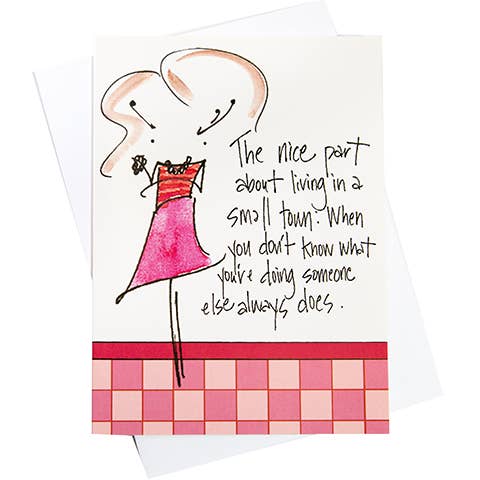 The nice part
about living in a
small town: When
you don't know what
you're doing someone
else always does.